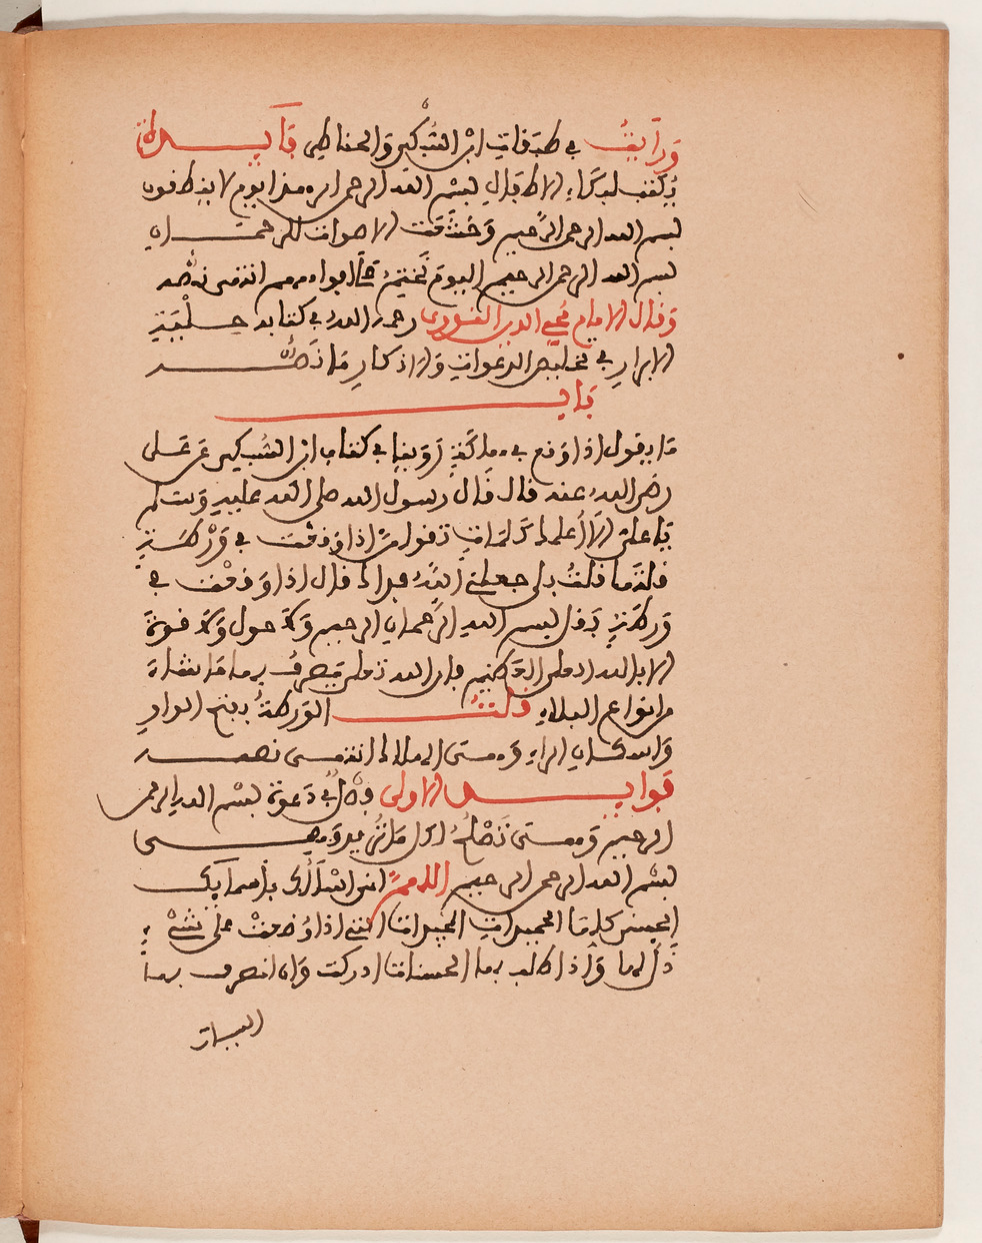 ورأيت في طبقات ابن السبكي والحناطي فايدة
يكتب لبكاء الاطفال بسم الله الرحمن الرحيم هذا يوم لا ينطقون
بسم الله الرحمن الرحيم وخشعت الاصوات للرحمان
بسم الله الرحمن الرحيم اليوم نختم على افواههم انتهى نصه
وقال الامام محيي الدين النووي رحمه الله في كتابه حلية
الابرار في تلخيص الدعوات والاذكار ما نصه
باب
ما يقول اذا وقع في هلكة روينا في كتاب ابن السبكي عن علي
رضي الله عنه قال قال رسول الله صلى الله عليه وسلم
يا علي الا اعلمك كلمات تقولهن اذا وقعت في ورطة
قلتها قلت بلى جعلني الله فداك قال اذا وقعت في
ورطة فقل بسم الله الرحمان الرحيم ولا حول ولا قوة
الا بالله العلي العظيم فان الله تعلى يصرف بها ما شاء
من انواع البلاء قلت الورطة بفتح الواو
واسكان الراء وهي الهلاك انتهى نصه
فوايد الاولى في دعوة بسم الله الرحمن
الرحيم وهي تصلح لكل ما تريد وهي
بسم الله الرحمن الرحيم اللهم اني اسألك بأسمايك
الحسنى كلها الحميدات التي اذا وضعت على شيء
ذل لها واذا طلب بها الحسنات ادركت وان انصرف بها
السيات